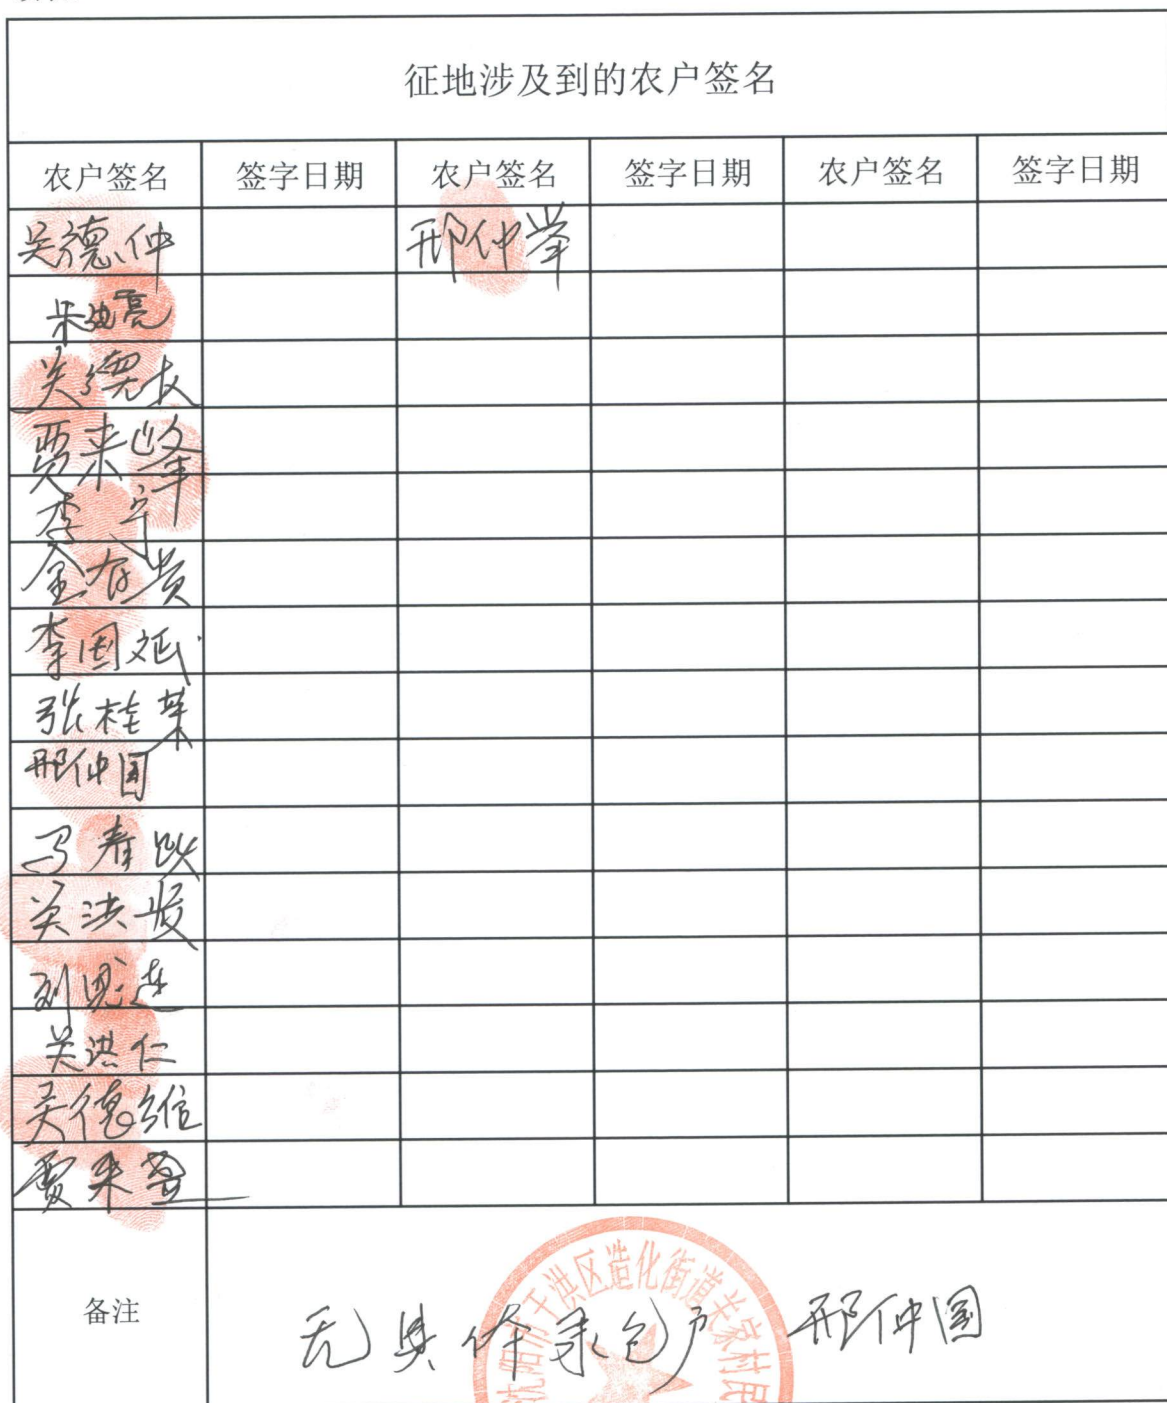 征地涉及到的农户签名
农户签名 签字日期 农户签名 签字日期 农户签名 签字日期
吴德仲 邢仲举
朱迪亮
关德友
贾来峰
李宁
金有贵
李国斌
张桂荣
邢仲国
马春
关洪
刘恩连
关洪仁
关德维
贾来
备注
无具体承包户 邢仲国
沈阳市于洪区造化街道关家村民